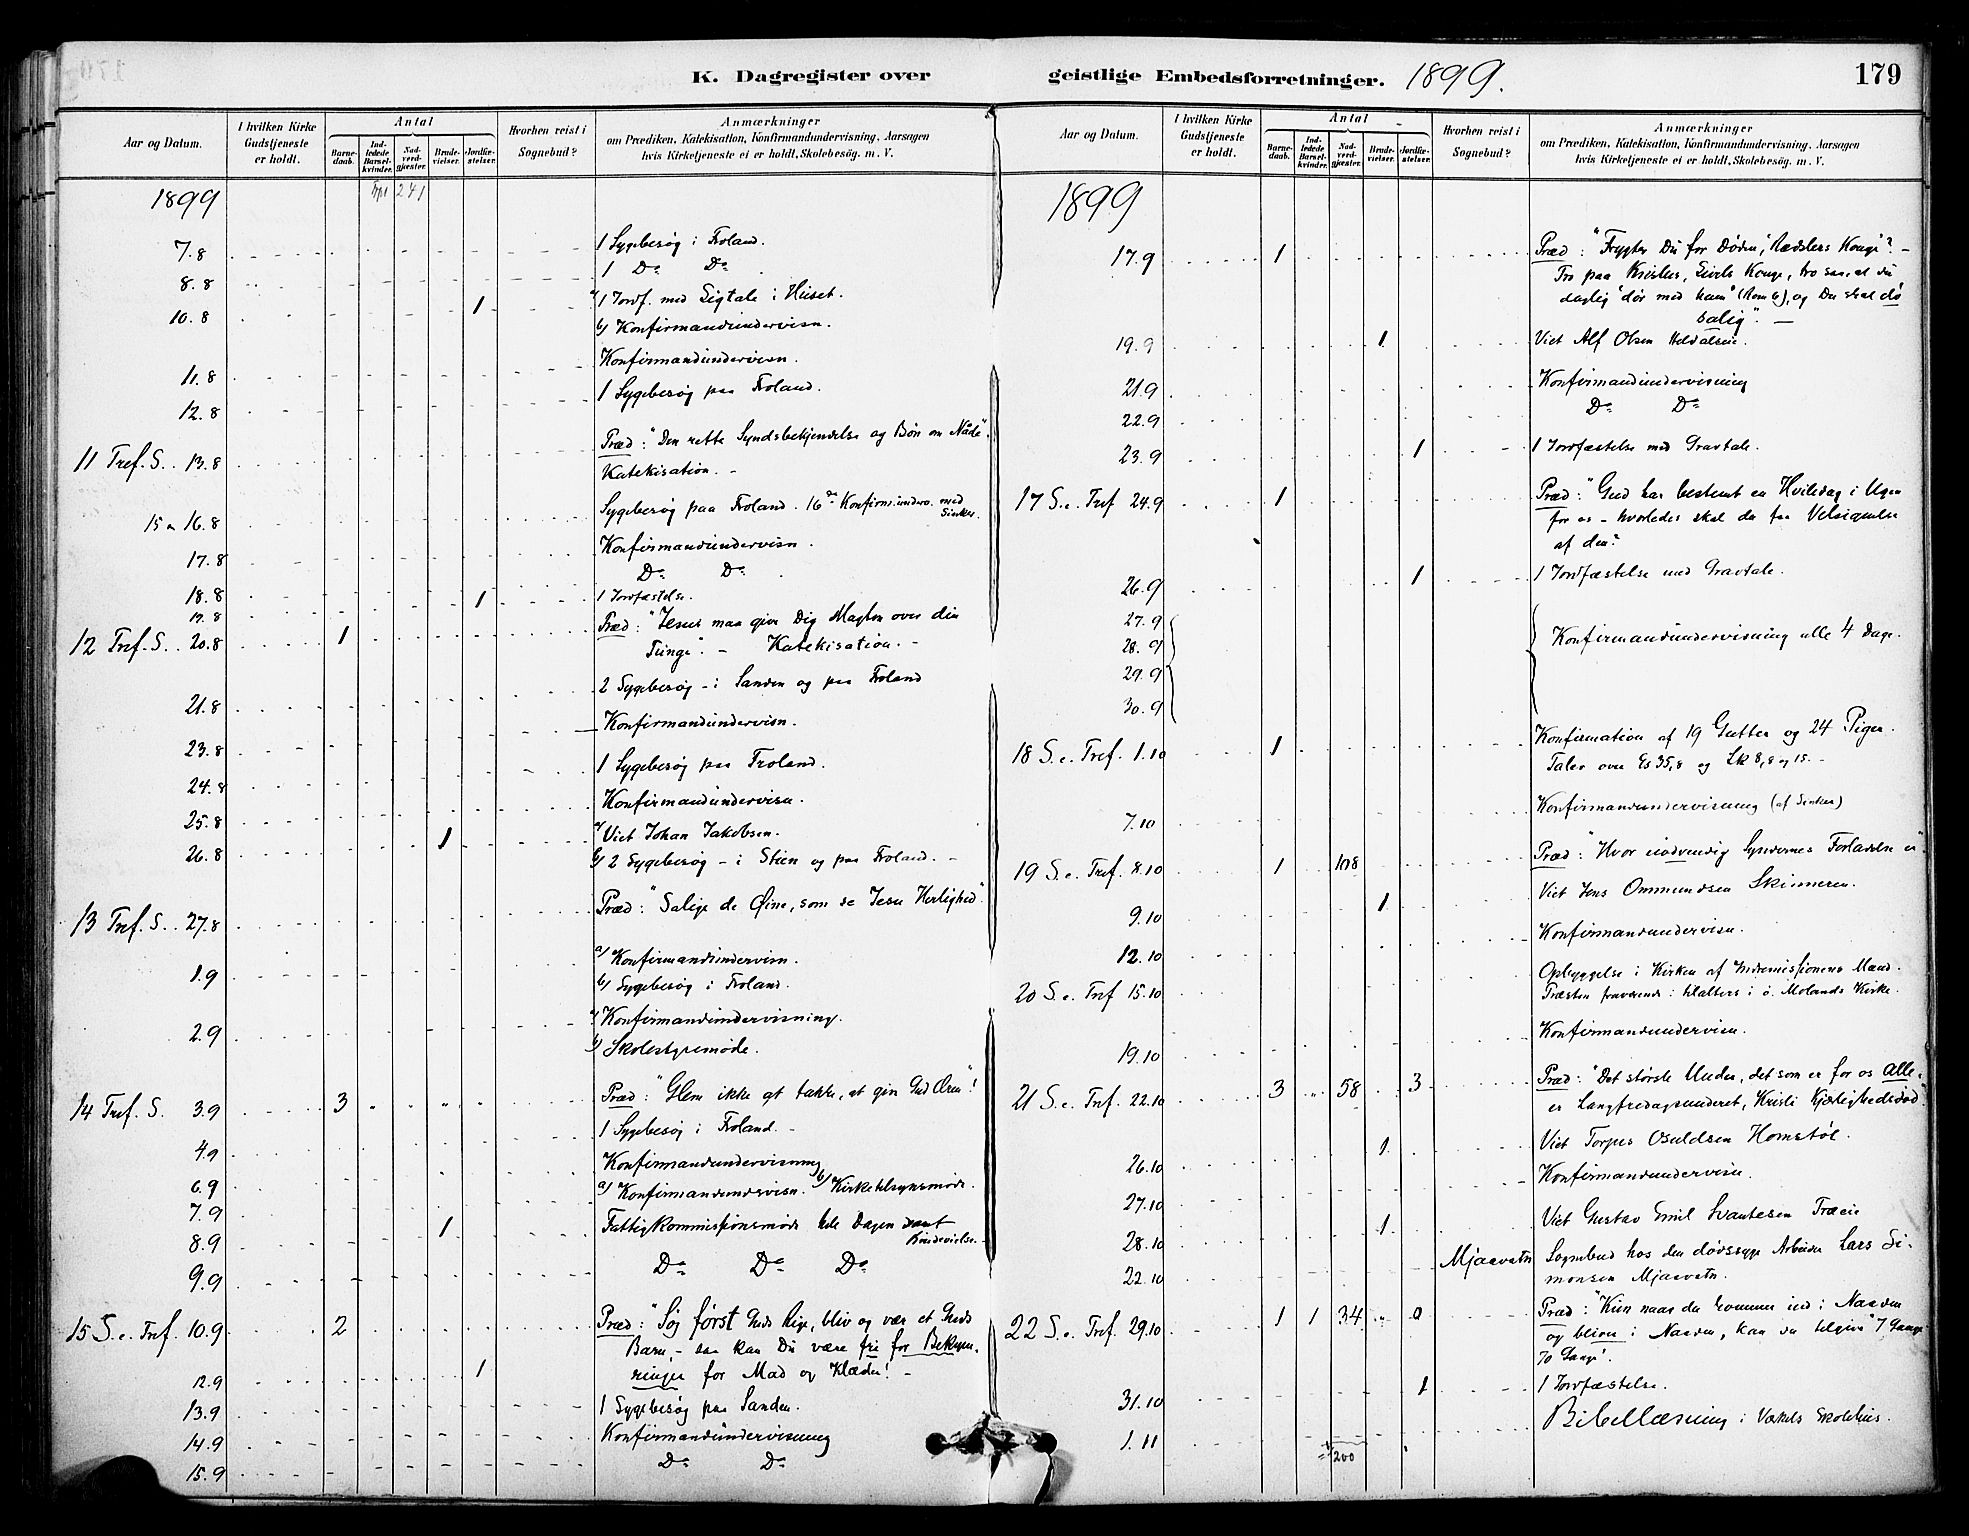 K. Dagregister over geistlige Embedsforretninger. 1899.
179
Aar og Datum.
I hvilken Kirke Gudstjeneste er holdt.
Antal
Barnedaab.
Indledede Barselkvinder.
Nadverdgjester.
Brudevielser.
Jordfæstelser.
Hvorhen reist i Sognebud?
Anmærkninger
om Prædiken, Katekisation, Konfirmandundervisning, Aarsagen
hvis Kirketjeneste ei er holdt, Skolebesøg. m. V.
1899 241
7.8 1 Sygebesøg i Froland.
8.8 1 Do Do
10.8 1 a) 1 Jordf. med Ligtale i Huset.
b) Konfirmandundervisn.
11.8 Konfirmandundervisn.
12.8 1 Sygebesøg paa Froland.
11 Tref. S. 13.8 Præd: "Den rette Syndsbekjendelse og Bøn om Nåde".
Katekisation. -
15 & 16.8 Sygebesøg paa Froland. 16de Konfirm.underv. med Sinker.
17.8 Konfirmandundervisn.
18.8 Do Do
19.8 1 1 Jordfæstelse.
12 Tref. S. 20.8 1 Præd: "Jesus maa give Dig Magten over din
Tunge". - Katekisation. -
21.8 2 Sygebesøg - i Sanden og paa Froland
23.8 Konfirmandundervisn.
24.8 1 Sygebesøg paa Froland.
25.8 Konfirmandundervisn.
26.8 1 a) Viet Johan Jakobsen.
b) 2 Sygebesøg - i Stien og paa Froland. -
13 Tref. S. 27.8 Præd: "Salige de Øine, som se Jesu Herlighed".
1.9 a) Konfirmandundervisn.
b) Sygebesøg i Froland.
2.9 a) Konfirmandundervisning.
b) Skolestyremøde.
14 Tref. S. 3.9 3 Præd: "Glem ikke at takke, at give Gud Æren"!
4.9 1 Sygebesøg i Froland. -
6.9 Konfirmandundervisning
7.9 a) Konfirmandundervisn. b) Kirketilsynsmøde.
8.9 1 Fattigkommissionsmøde hele Dagen samt
Brudevielse. -
9.9 Do Do Do
15 S. e. Tref. 10.9 2 Præd: "Søg først Guds Rige, bliv og vær et Guds
Barn, - saa kan Du være fri for Bekym-
ringer for Mad og Klæder! -
12.9 1
13.9 1 Sygebesøg paa Sanden.
14.9 Konfirmandundervisning
15.9 Do Do
Aar og Datum.
I hvilken Kirke Gudstjeneste er holdt.
Antal
Barnedaab.
Indledede Barselkvinder.
Nadverdgjester.
Brudevielser.
Jordfæstelser.
Hvorhen reist i Sognebud?
Anmærkninger
om Prædiken, Katekisation, Konfirmandundervisning, Aarsagen
hvis Kirketjeneste ei er holdt, Skolebesøg. m. V.
1899
17.9 1 Præd: "Frygter Du for Døden, Rædslers Konge"? -
Tro paa Kristus, Livets Konge, tro saa, at du
daglig "dør med ham" (Rom 6), og Du skal dø
salig". -
19.9 1 Viet Alf Olsen
21.9 Konfirmandundervisning
22.9 Do Do
23.9 1 1 Jordfæstelse med Gravtale.
17 S. e. Tref 24.9 1 Præd: "Gud har bestemt en Hviledag i Ugen
for os - hvorledes skal du faa Velsignelse
af den?
26.9 1 1 Jordfæstelse med Gravtale.
27.9
28.9 Konfirmandundervisning alle 4 Dage.
29.9
30.9
18 S. e. Tref. 1.10 1 Konfirmation af 19 Gutter og 24 Piger.
Taler over Es 35,8 og Lk 8,8 og 15. -
7.10 Konfirmandundervisning (af Sinker)
19 S. e. Tref. 8.10 1 108 Præd: "Hvor nødvendig Syndernes Forladelse er".
9.10 1 Viet Jens Ommundsen Skinneren.
12.10 Konfirmandundervisn.
20 S. e. Tref 15.10 Opbyggelse i Kirken af Indremissionens Mænd.
Præsten fraværende: tilalters i ø. Molands Kirke.
19.10 Konfirmandundervisn.
21 S. e. Tref. 22.10 3 58 3 Præd: "Det største Under, det som er for os Alle,
er Langfredagsunderet, Kristi Kjærlighedsdød".
26.10 1 Viet Torpus Osuldsen Homstøl.
27.10 Konfirmandundervisn.
28.10 1 Viet Gustav Emil Svantesen
22.10 Mjaavatn Sognebud hos den dødssyge Arbeider Lars Si-
monsen Mjaavatn.
22 S. e. Tref. 29.10 1 1 34 0 Præd: "Kun naar du kommer ind i Naaden
og bliver i Naaden, kan du tilgive "7 Gange
70 Gange".
31.10 1 1 Jordfæstelse.
1.11 Bibellæsning i Vækels Skolehus.
200